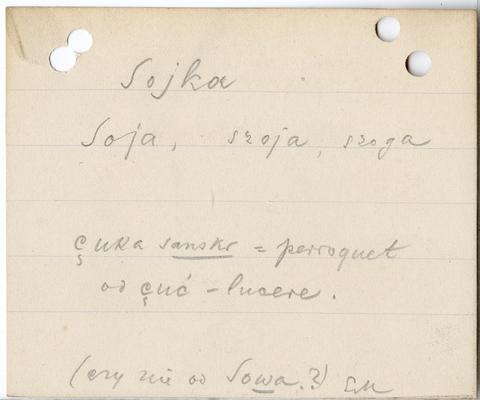 Sojka
Soja, szoja, szoga
çuka sanskr = perroquet
od çuć - lucere.
(czy nie od Sowa?) EM